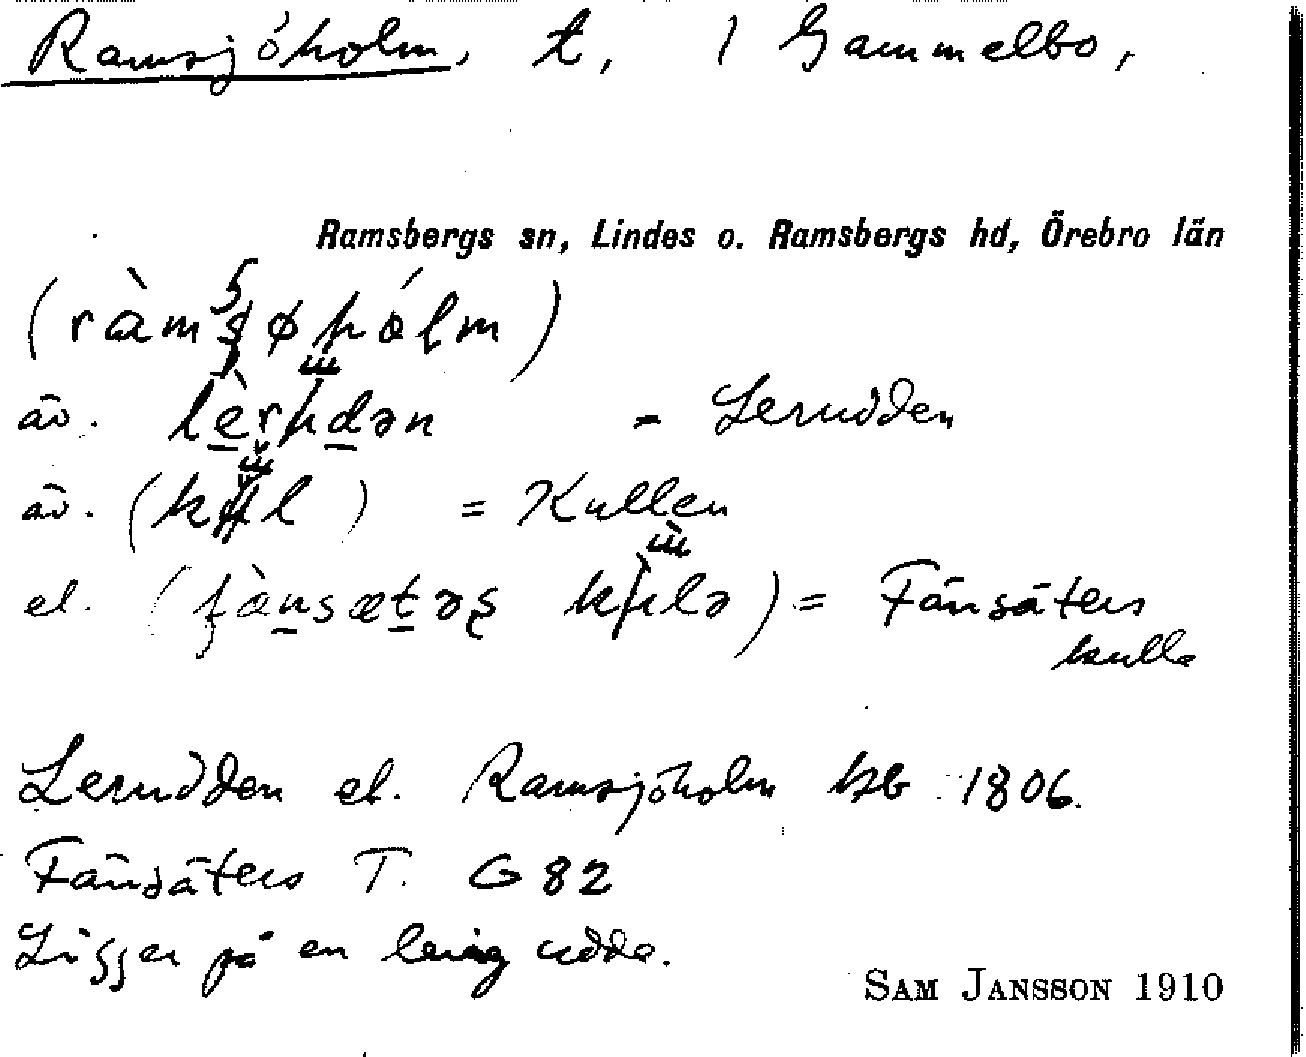 Ramsjöholm, t, i Gammelbo,
Ramsbergs sn, Lindes o. Ramsbergs hd, Örebro län
äv. = Lerudden
äv. = Kullen
el. = Fänsäters
kulle
Lerudden el. Ramsjöholm kb 1806.
Fänsäters T. G 82
Ligger på en lerig udde.
SAM JANSSON 1910